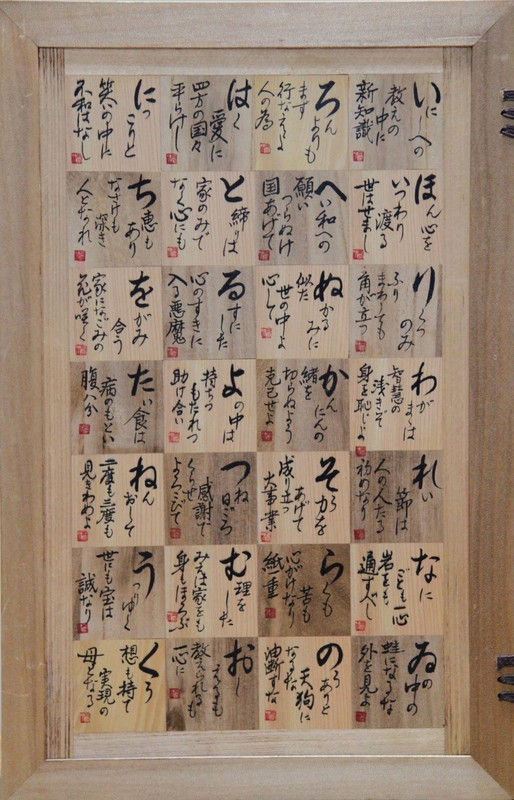 いにしへの
教えの
中に
新知識
ろんよりも
まず
行なえよ
人の為
はく
愛に
四方の国々
平らけし
にっこりと
笑の中に
不和はなし
ほん心を
いつわり
渡る
世はせまし
へい和への
願い
つらぬけ
国あげて
と締りは
家のみで
なく心にも
ち恵も
あり
なさけも
深き
人となれ
りくつ
のみ
ふり
まわしても
角が立つ
ぬかる
みに
似た
世の中よ
心して
るすに
した
心のすきに
入る悪魔
をがみ
合う
家になごみの
花が咲く
わがまゝは
智慧の
浅きぞ
身を恥じよ
かんにんの
緒を
切らぬよう
克己せよ
よの中は
持ちつ
もたれつ
助け合い
たい食は
病のもとい
腹八分
れい
節は
人の人たる
初めなり
そう力を
あげて
成り立つ
大事業
つね
日ごろ
感謝で
くらせ
よろこびて
ねん
おして
二度も三度も
見きわめよ
なに
ごとも一心
岩をも
通すべし
らくも
苦も
心がけなり
紙一重
む理を
した
みえは家をも
身もほろぶ
うつりゆく
世にも宝は
誠なり
ゐの中の
蛙になるな
外を見よ
のうありと
天狗に
なるな
油断すな
おし
えるも
教えられるも
一心に
くう
想も持て
実現の
母となる